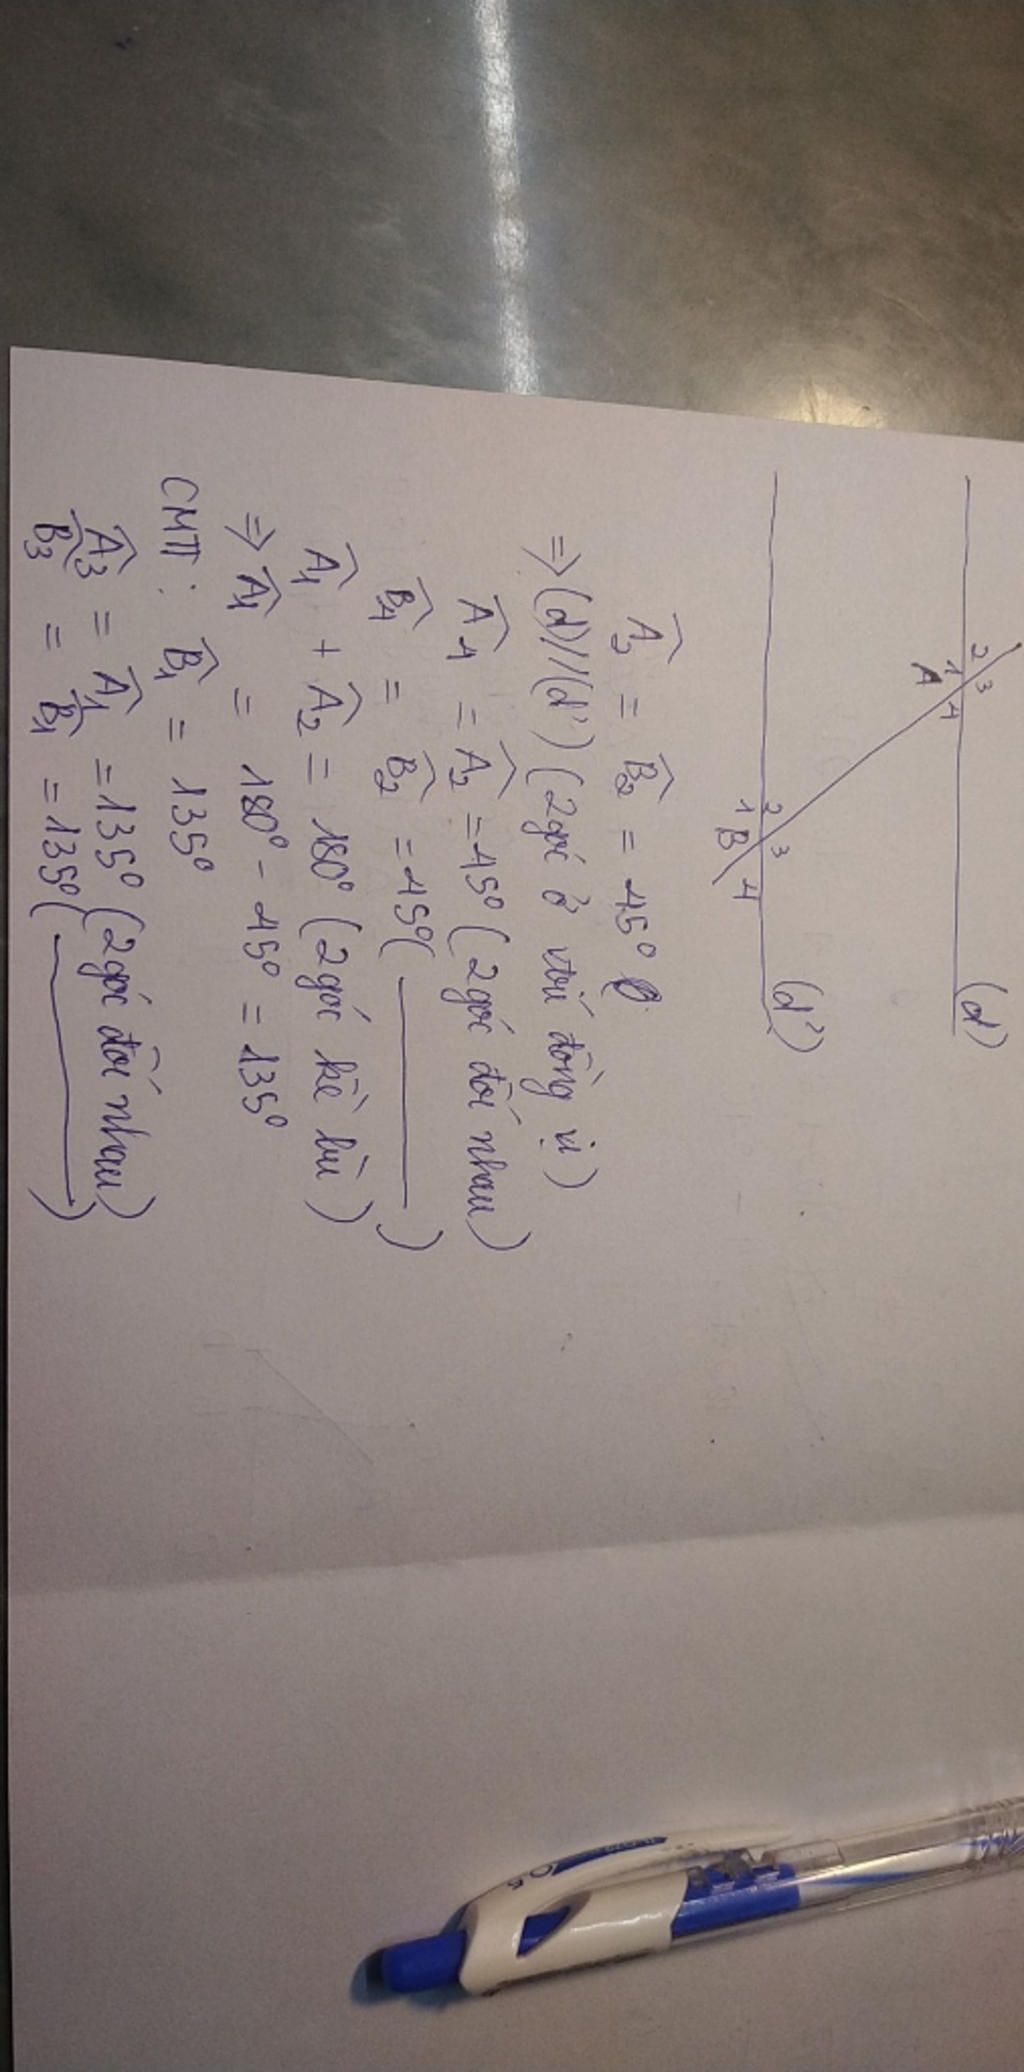 (d)
2 3
1 4
A
(d')
2 3
1 4
B
Â₂ = B̂₂ = 45°
=> (d) // (d') (2 góc ở vị trí đồng vị)
Â₄ = Â₂ = 45° (2 góc đối nhau)
B̂₄ = B̂₂ = 45° ( ——— )
Â₁ + Â₂ = 180° (2 góc kề bù)
=> Â₁ = 180° - 45° = 135°
CMTT: B̂₁ = 135°
Â₃ = Â₁ = 135° (2 góc đối nhau)
B̂₃ = B̂₁ = 135° ( ——— )
0.5